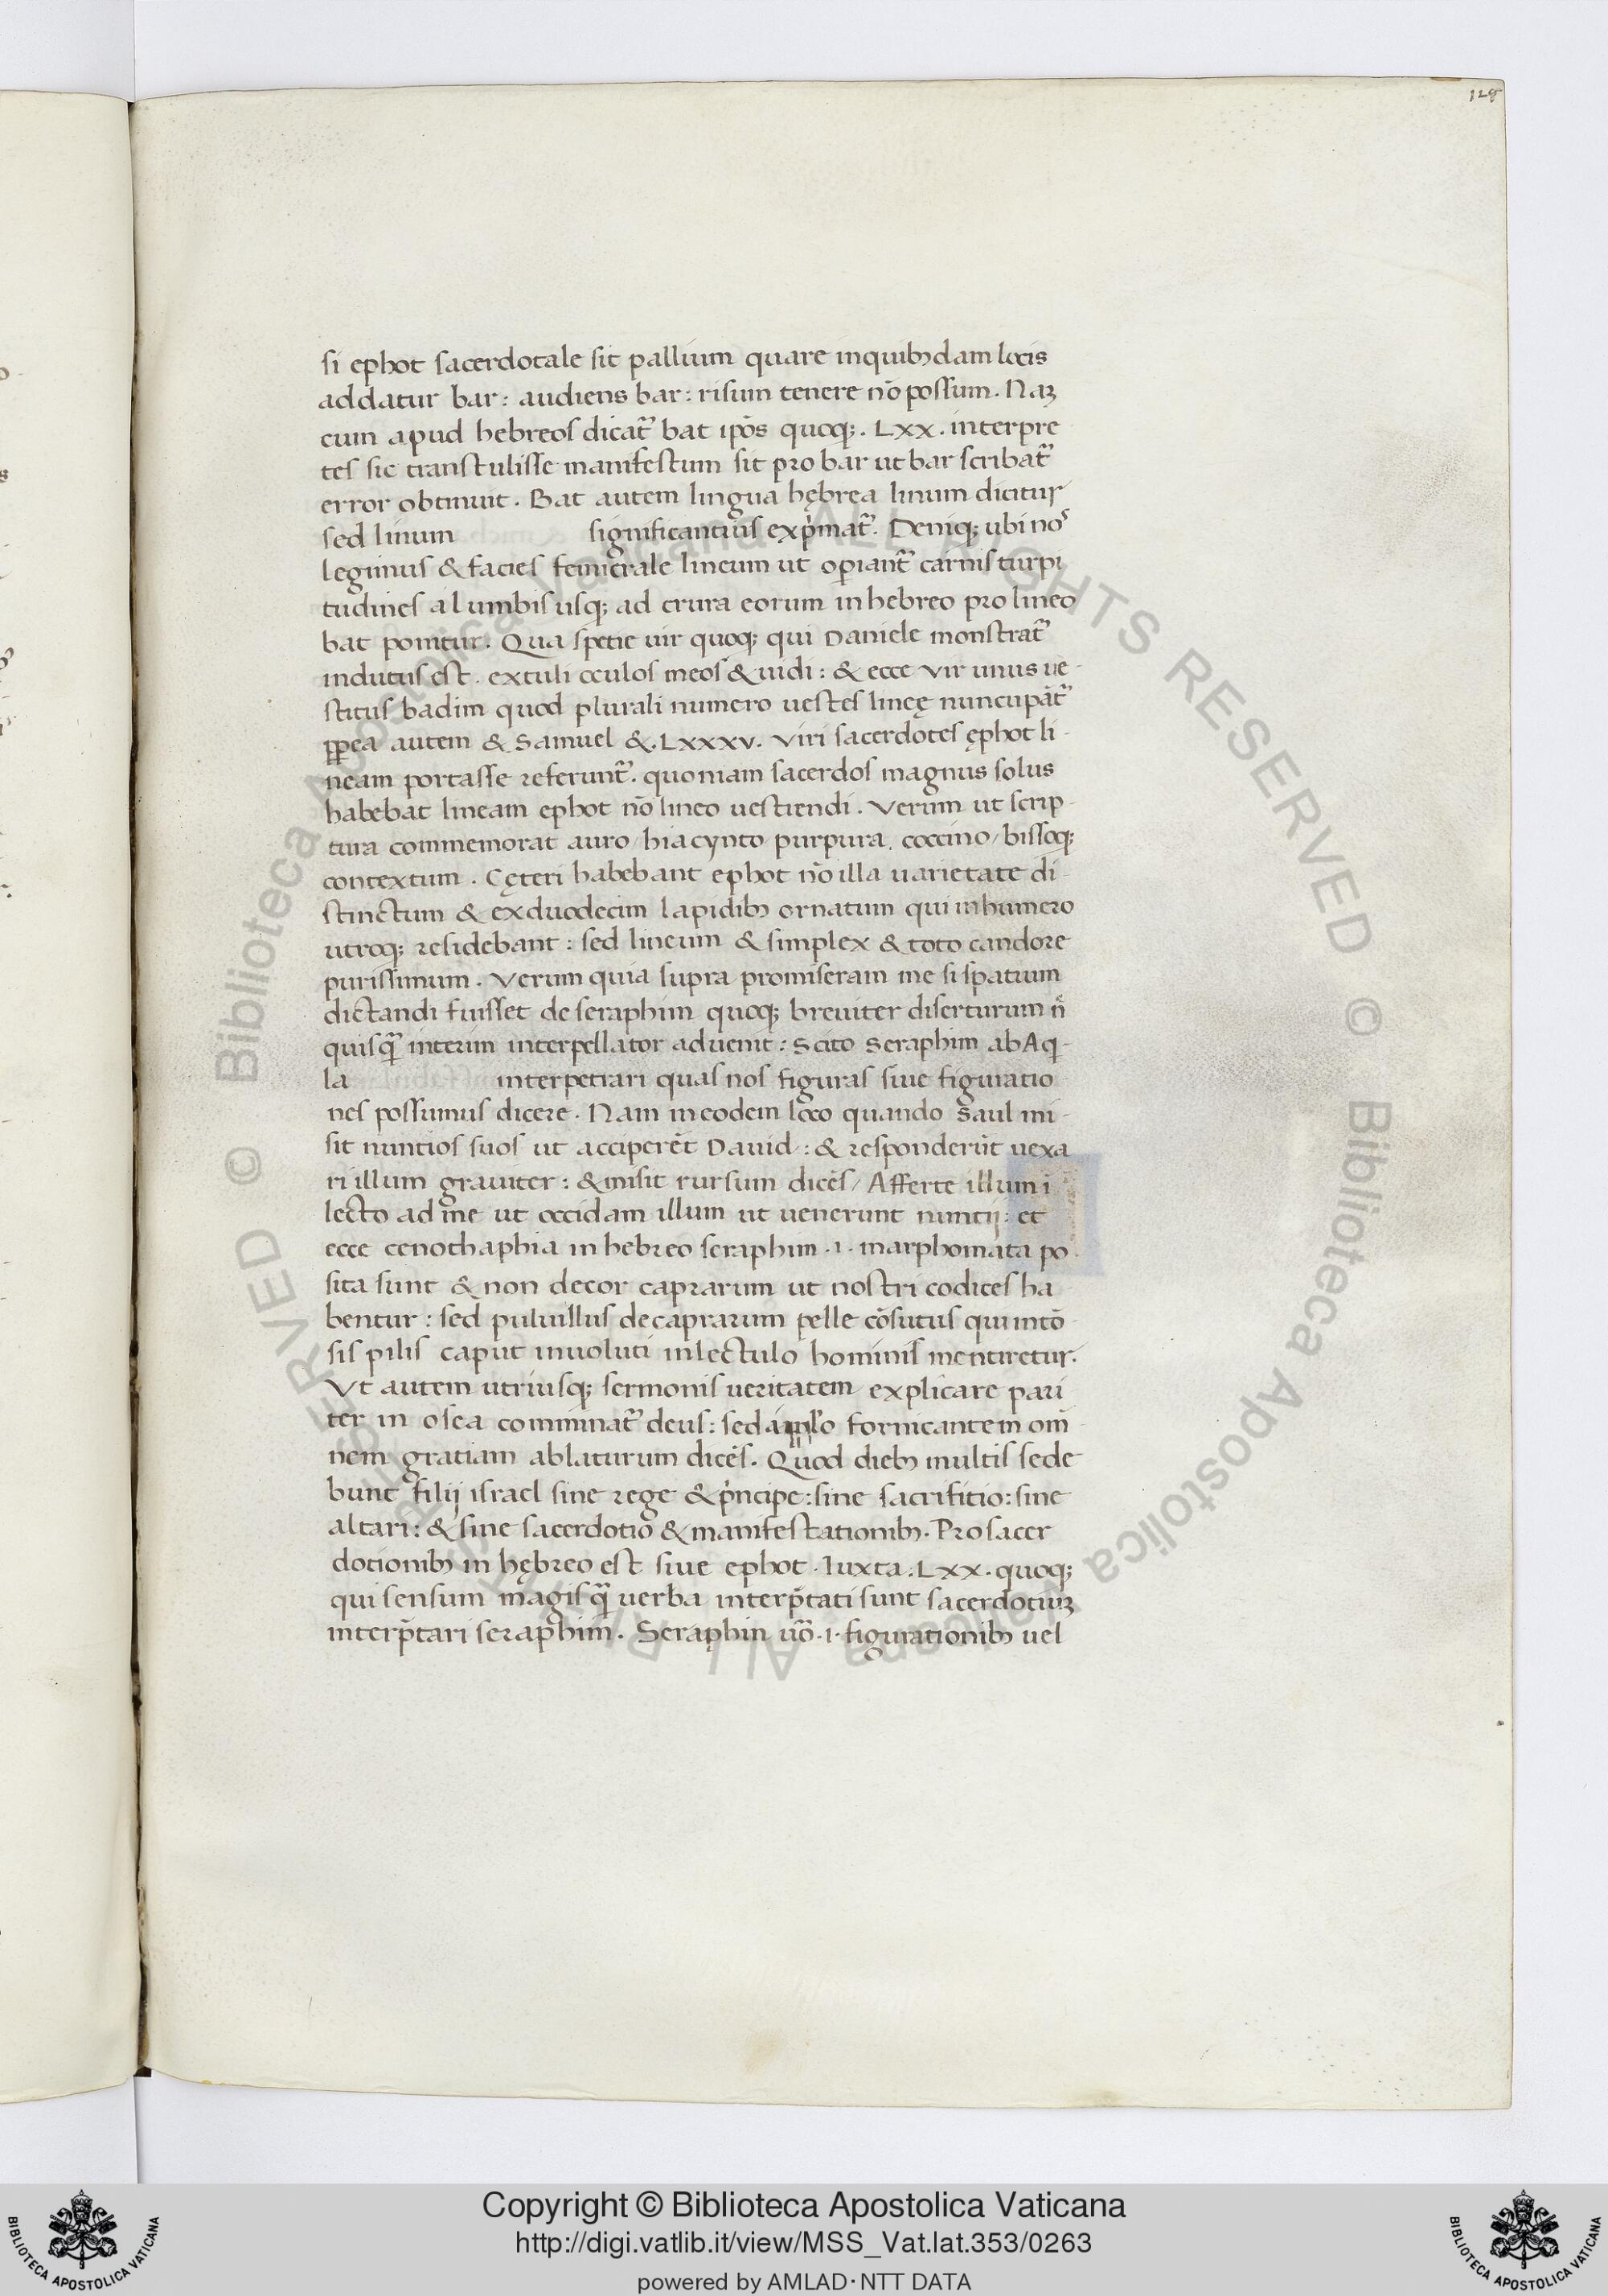 128
si ephot sacerdotale sit pallium quare inquibꝫdam locis
addatur bar: audiens bar: risum tenere nō possum. Naꝫ
cum apud hebreos dicat᷑ bat ipōs quoq;. Lxx. interpre
tes sic transtulisse manifestum sit pro bar ut bar scribat᷑
error obtinuit. Bat autem lingua hębrea linum dicitur
sed linum significantius exp̍mat᷑. Deniq; ubi nos
legimus & facies feminerale lineum ut operiant᷑ carnis turpi
tudines a lumbis usq; ad crura eorum in hebreo pro lineo
bat ponitur. Qua spetie uir quoq; qui Daniele monstrat᷑
indutus est. extuli oculos meos & uidi: & ecce vir unus ue-
stitus badim quod plurali numero uestes lineę nuncupāt᷑
ꝓpea autem & Samuel &. Lxxxv. viri sacerdotes ęphot li-
neam portasse referunt᷑. quoniam sacerdos magnus solus
habebat lineam ephot nō lineo uestiendi. Verum ut scrip-
tura commemorat auro / hiacynto / purpura. coccino / bissoq;
contextum. Cęteri habebant ephot nō illa uarietate di-
stinctum & exduodecim lapidibꝫ ornatum qui in humero
utroq; residebant: sed lineum & simplex & toto candore
purissimum. Verum quia supra promiseram me si spatium
dictandi fuisset de seraphim quoq; breuiter diserturum n̄
quisq̄ interim interpellator aduenit: Scito seraphim ab Aq-
la interpetrari quas nos figuras siue figuratio
nes possumus dicere. Nam in eodem loco quando Saul mi-
sit nuntios suos ut acciperēt Dauid: & responderūt uexa
ri illum grauiter: & misit rursum dicēs / Afferte illum i
lecto ad me ut occidam illum ut uenerunt nuntij: et
ecce cenothaphia in hebreo seraphim .i. marphomata po
sita sunt & non decor caprarum ut nostri codices ha
bentur: sed puluillus decaprarum pelle cōsutus qui intō
sis pilis caput inuoluti inlectulo hominis mentiretur.
Vt autem utriusq; sermonis ueritatem explicare pari
ter in osea comminat᷑ deus: sed a pp̄lo fornicantem om̄
nem gratiam ablaturum dicēs. Quod diebꝫ multis sede
bunt filij israel sine rege & p̍ncipe: sine sacrifitio: sine
altari: & sine sacerdotio & manifestationibꝫ. Pro sacer
dotionibꝫ in hębreo est siue ephot. Iuxta. Lxx. quoq;
qui sensum magisq̄ uerba interp̄tati sunt sacerdotiuꝫ
interp̄tari seraphim. Seraphin uō .i. figurationibꝫ uel
© Biblioteca Apostolica Vaticana ALL RIGHTS RESERVED © Biblioteca Apostolica Vaticana ALL RIGHTS RESERVED
Copyright © Biblioteca Apostolica Vaticana
http://digi.vatlib.it/view/MSS_Vat.lat.353/0263
powered by AMLAD·NTT DATA
BIBLIOTECA APOSTOLICA VATICANA
BIBLIOTECA APOSTOLICA VATICANA